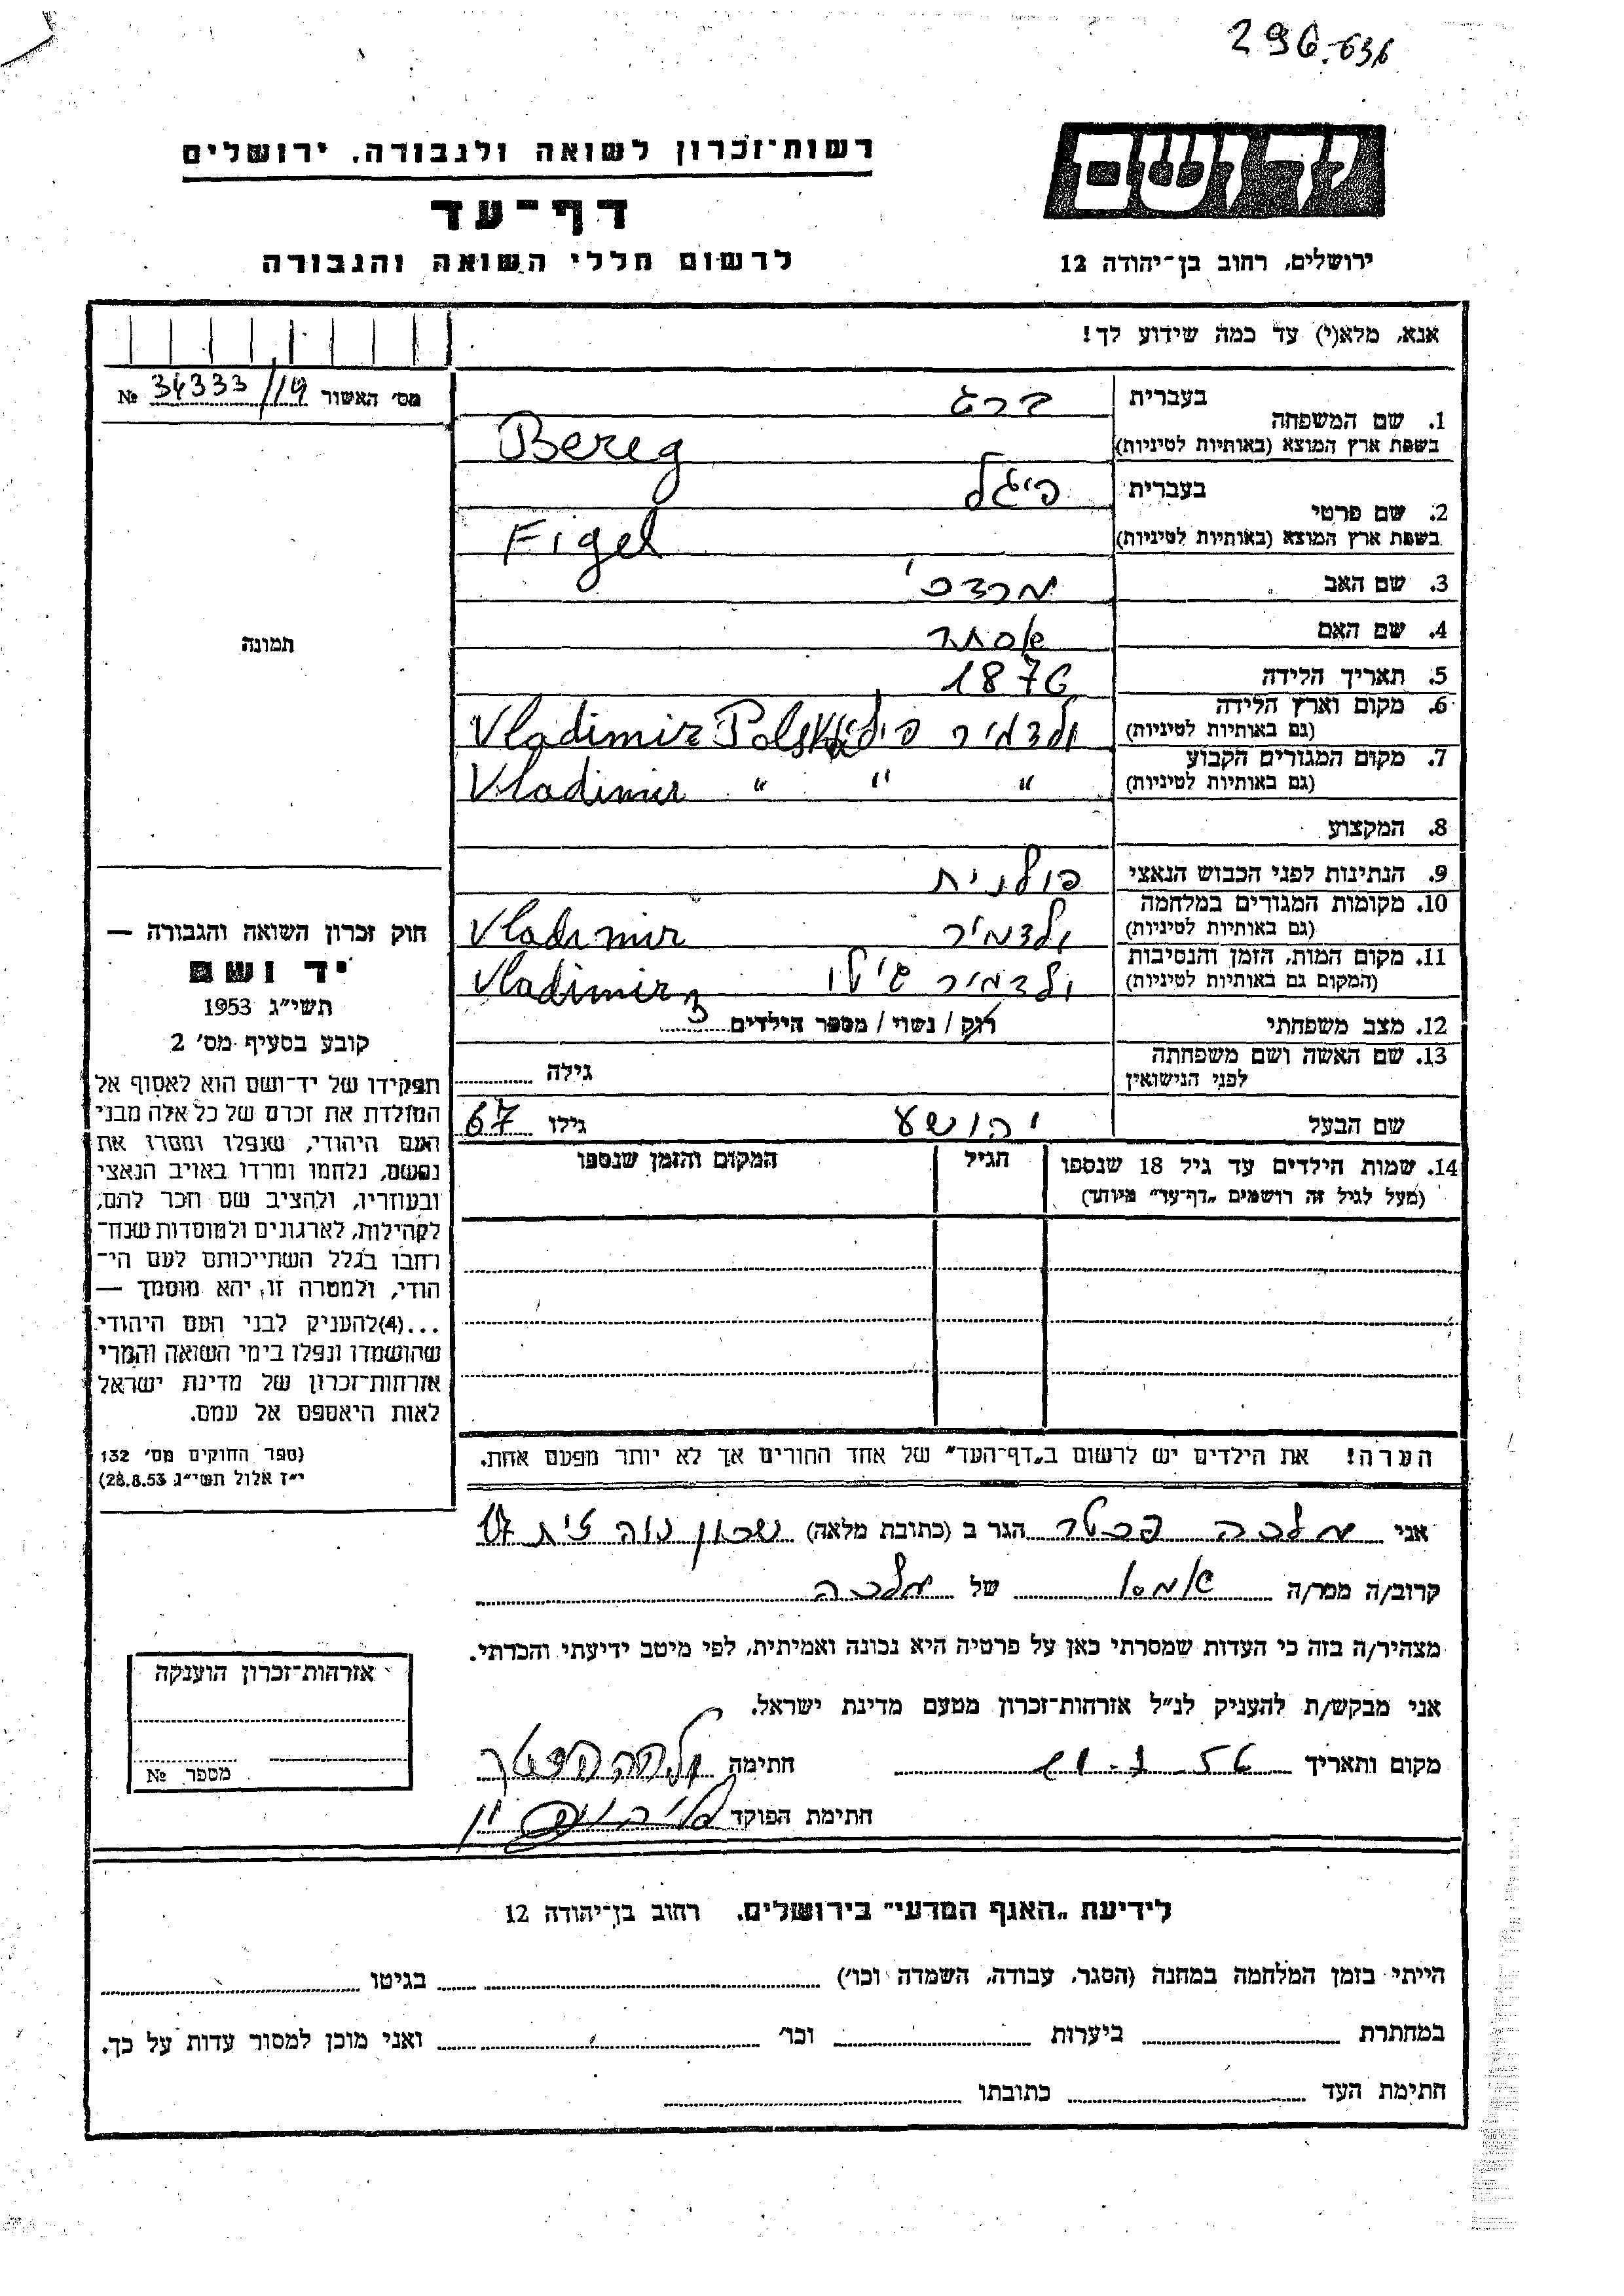 296-636
רשות־זכרון לשואה ולגבורה, ירושלים
דף־עד
לרשום חללי השואה והגבורה
יד ושם
ירושלים, רחוב בן־יהודה 12
אנא, מלא(י) עד כמה שידוע לך!
מס׳ האשור 34333/19 №
1. שם המשפחה
בעברית ברג
בשפת ארץ המוצא (באותיות לטיניות) Bereg
2. שם פרטי
בעברית פיגל
בשפת ארץ המוצא (באותיות לטיניות) Figel
3. שם האב מרדכי
4. שם האם אסתר
5. תאריך הלידה 1876
6. מקום וארץ הלידה
(גם באותיות לטיניות) ולדמיר Vladimir
7. מקום המגורים הקבוע
(גם באותיות לטיניות) " " " Vladimir
8. המקצוע
9. הנתינות לפני הכבוש הנאצי פולנית
10. מקומות המגורים במלחמה
(גם באותיות לטיניות) ולדמיר Vladimir
11. מקום המות, הזמן והנסיבות
(המקום גם באותיות לטיניות) ולדמיר גיטו Vladimir
12. מצב משפחתי רוק / נשוי / מספר הילדים 3
13. שם האשה ושם משפחתה
לפני הנישואין
גילה
שם הבעל יהושע גילו 67
14. שמות הילדים עד גיל 18 שנספו
(מעל לגיל זה רושמים „דף־עד״ מיוחד)
הגיל
המקום והזמן שנספו
הערה! את הילדים יש לרשום ב„דף־העד״ של אחד ההורים אך לא יותר מפעם אחת.
תמונה
חוק זכרון השואה והגבורה —
יד ושם
תשי״ג 1953
קובע בסעיף מס׳ 2
תפקידו של יד־ושם הוא לאסוף אל
המולדת את זכרם של כל אלה מבני
העם היהודי, שנפלו ומסרו את
נפשם, נלחמו ומרדו באויב הנאצי
ובעוזריו, ולהציב שם וזכר להם,
לקהילות, לארגונים ולמוסדות שנח־
רחבו בגלל השתייכותם לעם הי־
הודי, ולמטרה זו, יהא מוסמך —
...(4)להעניק לבני העם היהודי
שהושמדו ונפלו בימי השואה והמרי
אזרחות־זכרון של מדינת ישראל
לאות היאספם אל עמם.
(ספר החוקים מס׳ 132
י״ז אלול תשי״ג 28.8.53)
אני מלכה הגר ב (כתובת מלאה) שכון נוה זית 17
קרוב/ה מכר/ה של מלכה
מצהיר/ה בזה כי העדות שמסרתי כאן על פרטיה היא נכונה ואמיתית, לפי מיטב ידיעתי והכרתי.
אני מבקש/ת להעניק לנ״ל אזרחות־זכרון מטעם מדינת ישראל.
מקום ותאריך חתימה
חתימת הפוקד
אזרחות־זכרון הוענקה
מספר №
לידיעת „האגף המדעי״ בירושלים, רחוב בן־יהודה 12
הייתי בזמן המלחמה במחנה (הסגר, עבודה, השמדה וכו׳) בגיטו
במחתרת ביערות וכו׳ ואני מוכן למסור עדות על כך.
חתימת העד כתובתו